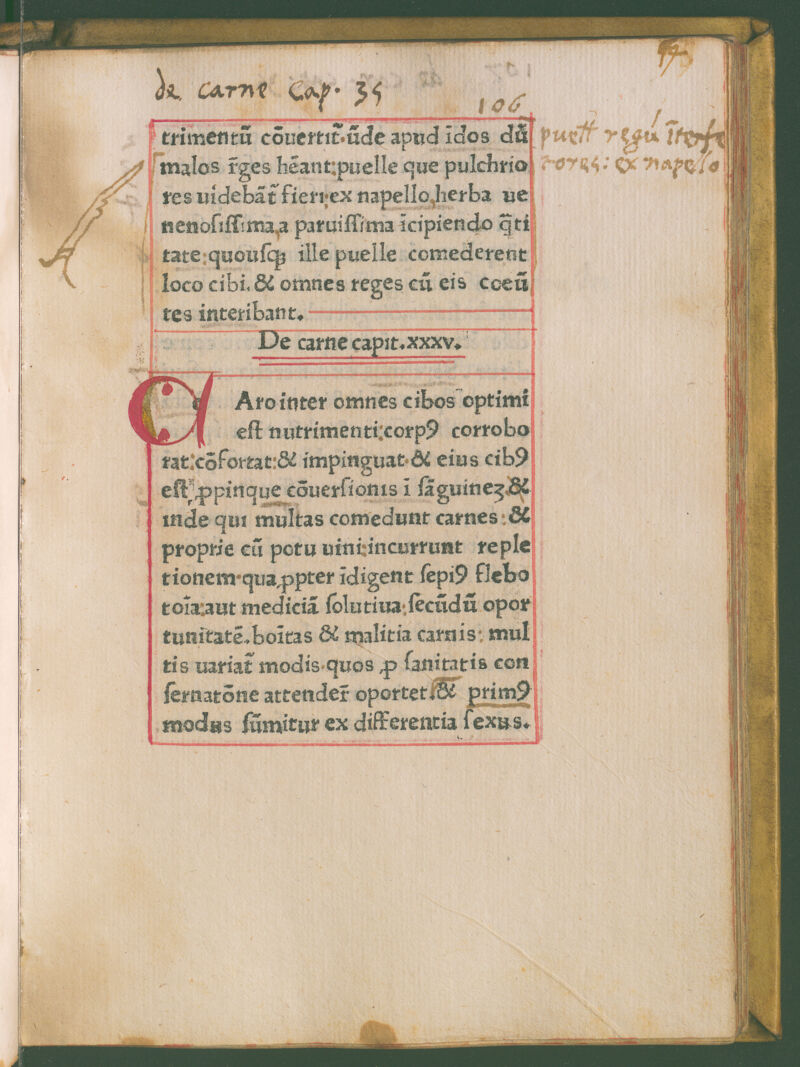 de carne Cap. 35
106
puell regū īterfe
tores: ex napello
trimentū cōuertit̄.ūde apud īdos dū
malos r̄ges hēant:puelle que pulchrio
res uidebāt̄ fieri:ex napello,herba ue
nenosissima,a paruissima īcipiendo q̄ti
tate:quousqꝫ ille puelle comederent
loco cibi. & omnes reges cū eis coeū
tes interibant.
De carne capit.xxxv.
CAro inter omnes cibos optimi
est nutrimenti:corpꝰ corrobo
rat:cōfortat:& impinguat.& eius cibꝰ
est ꝓpinque cōuersionis ī sāguineꝫ.&
inde qui multas comedunt carnes:&
proprie cū potu uini:incurrunt reple
tionem.quaꝓpter īdigent sepiꝰ flebo
toīa:aut mediciā solutiua:secūdū opor
tunitatē.boītas & malitia carnis: mul
tis uariat̄ modis.quos ꝓ sanitatis con
seruatōne attender̄ oportet. & primꝰ
modus sūmitur ex differentia sexus.